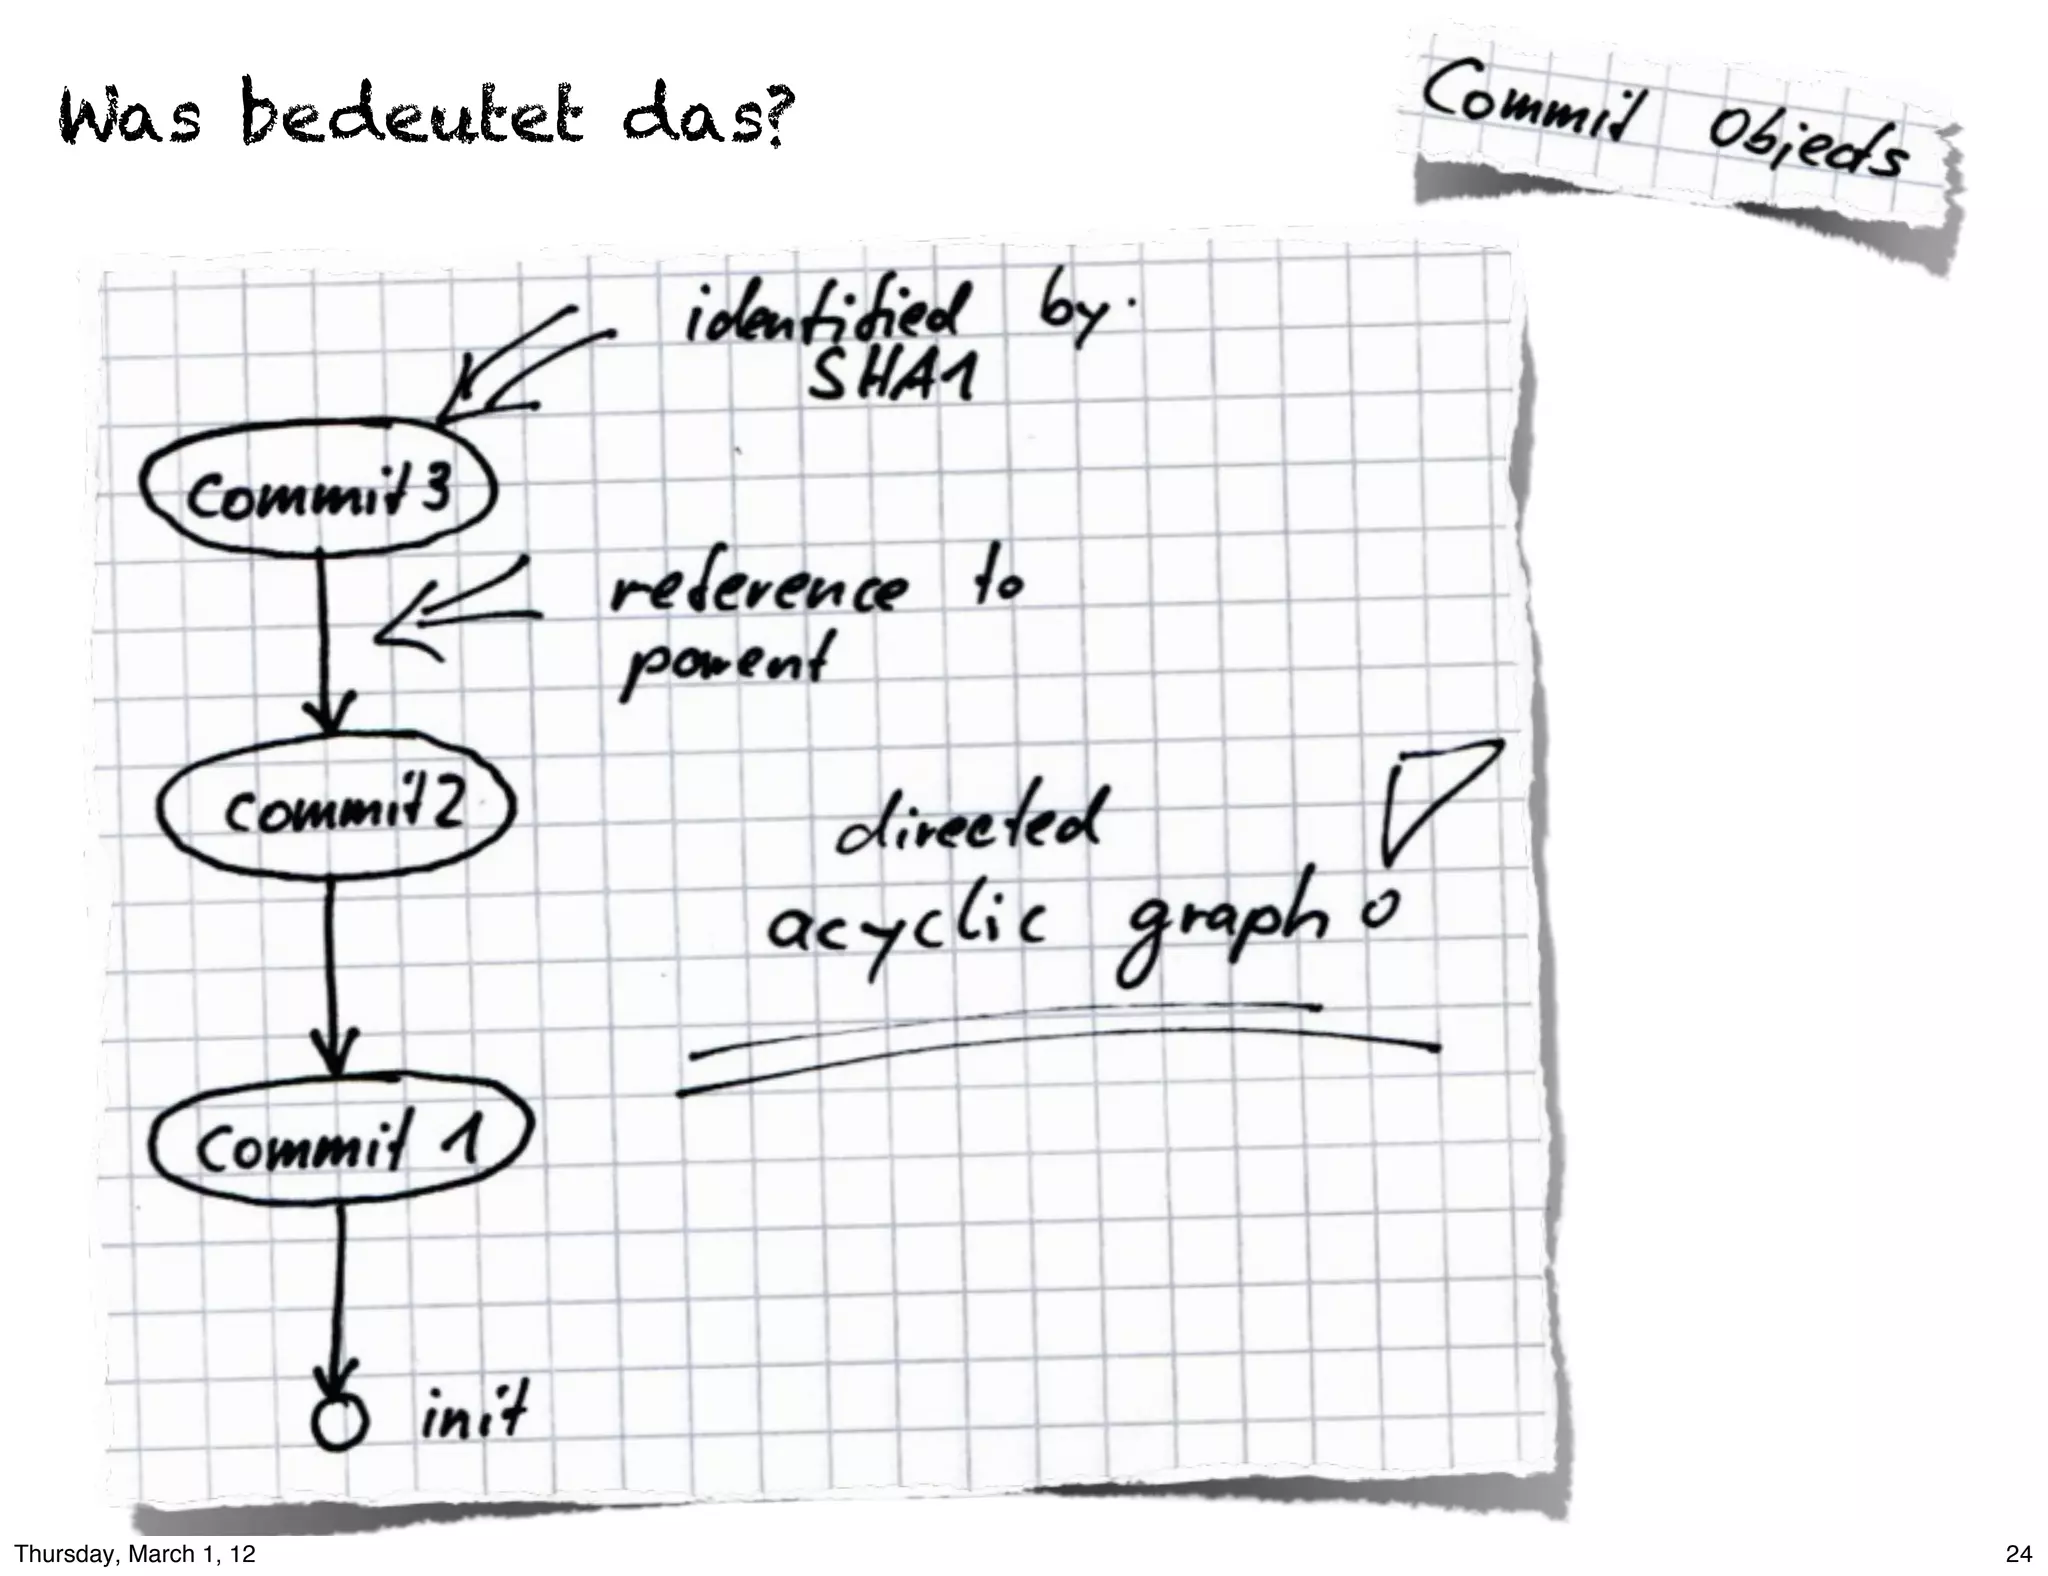 Was bedeutet das?
Commit Objects
identified by:
SHA1
commit 3
reference to
parent
commit 2
directed
acyclic graph!
commit 1
init
Thursday, March 1, 12
24